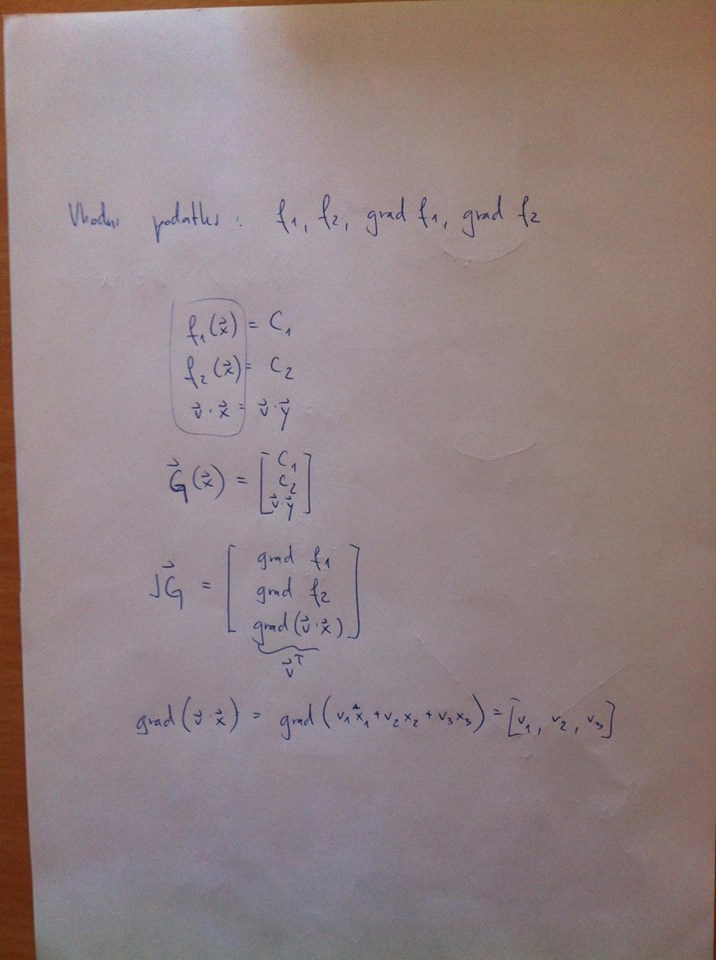 Vhodni podatki: f₁, f₂, grad f₁, grad f₂
f₁(x⃗) = C₁
f₂(x⃗) = C₂
v⃗ · x⃗ = v⃗ · y⃗
G⃗(x⃗) = [C₁
C₂
v⃗ · y⃗]
JG⃗ = [grad f₁
grad f₂
grad(v⃗ · x⃗)]
v⃗ᵀ
grad(v⃗ · x⃗) = grad(v₁x₁ + v₂x₂ + v₃x₃) = [v₁, v₂, v₃]